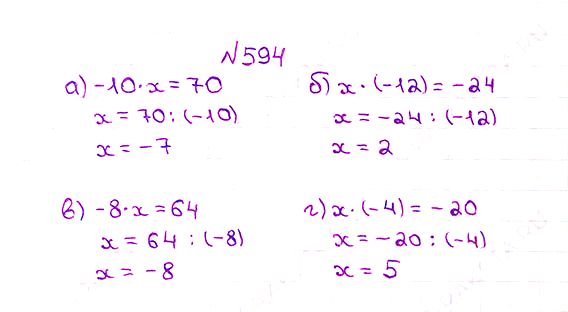 №594
а) -10·x = 70
x = 70 : (-10)
x = -7
б) x · (-12) = -24
x = -24 : (-12)
x = 2
в) -8·x = 64
x = 64 : (-8)
x = -8
г) x · (-4) = -20
x = -20 : (-4)
x = 5